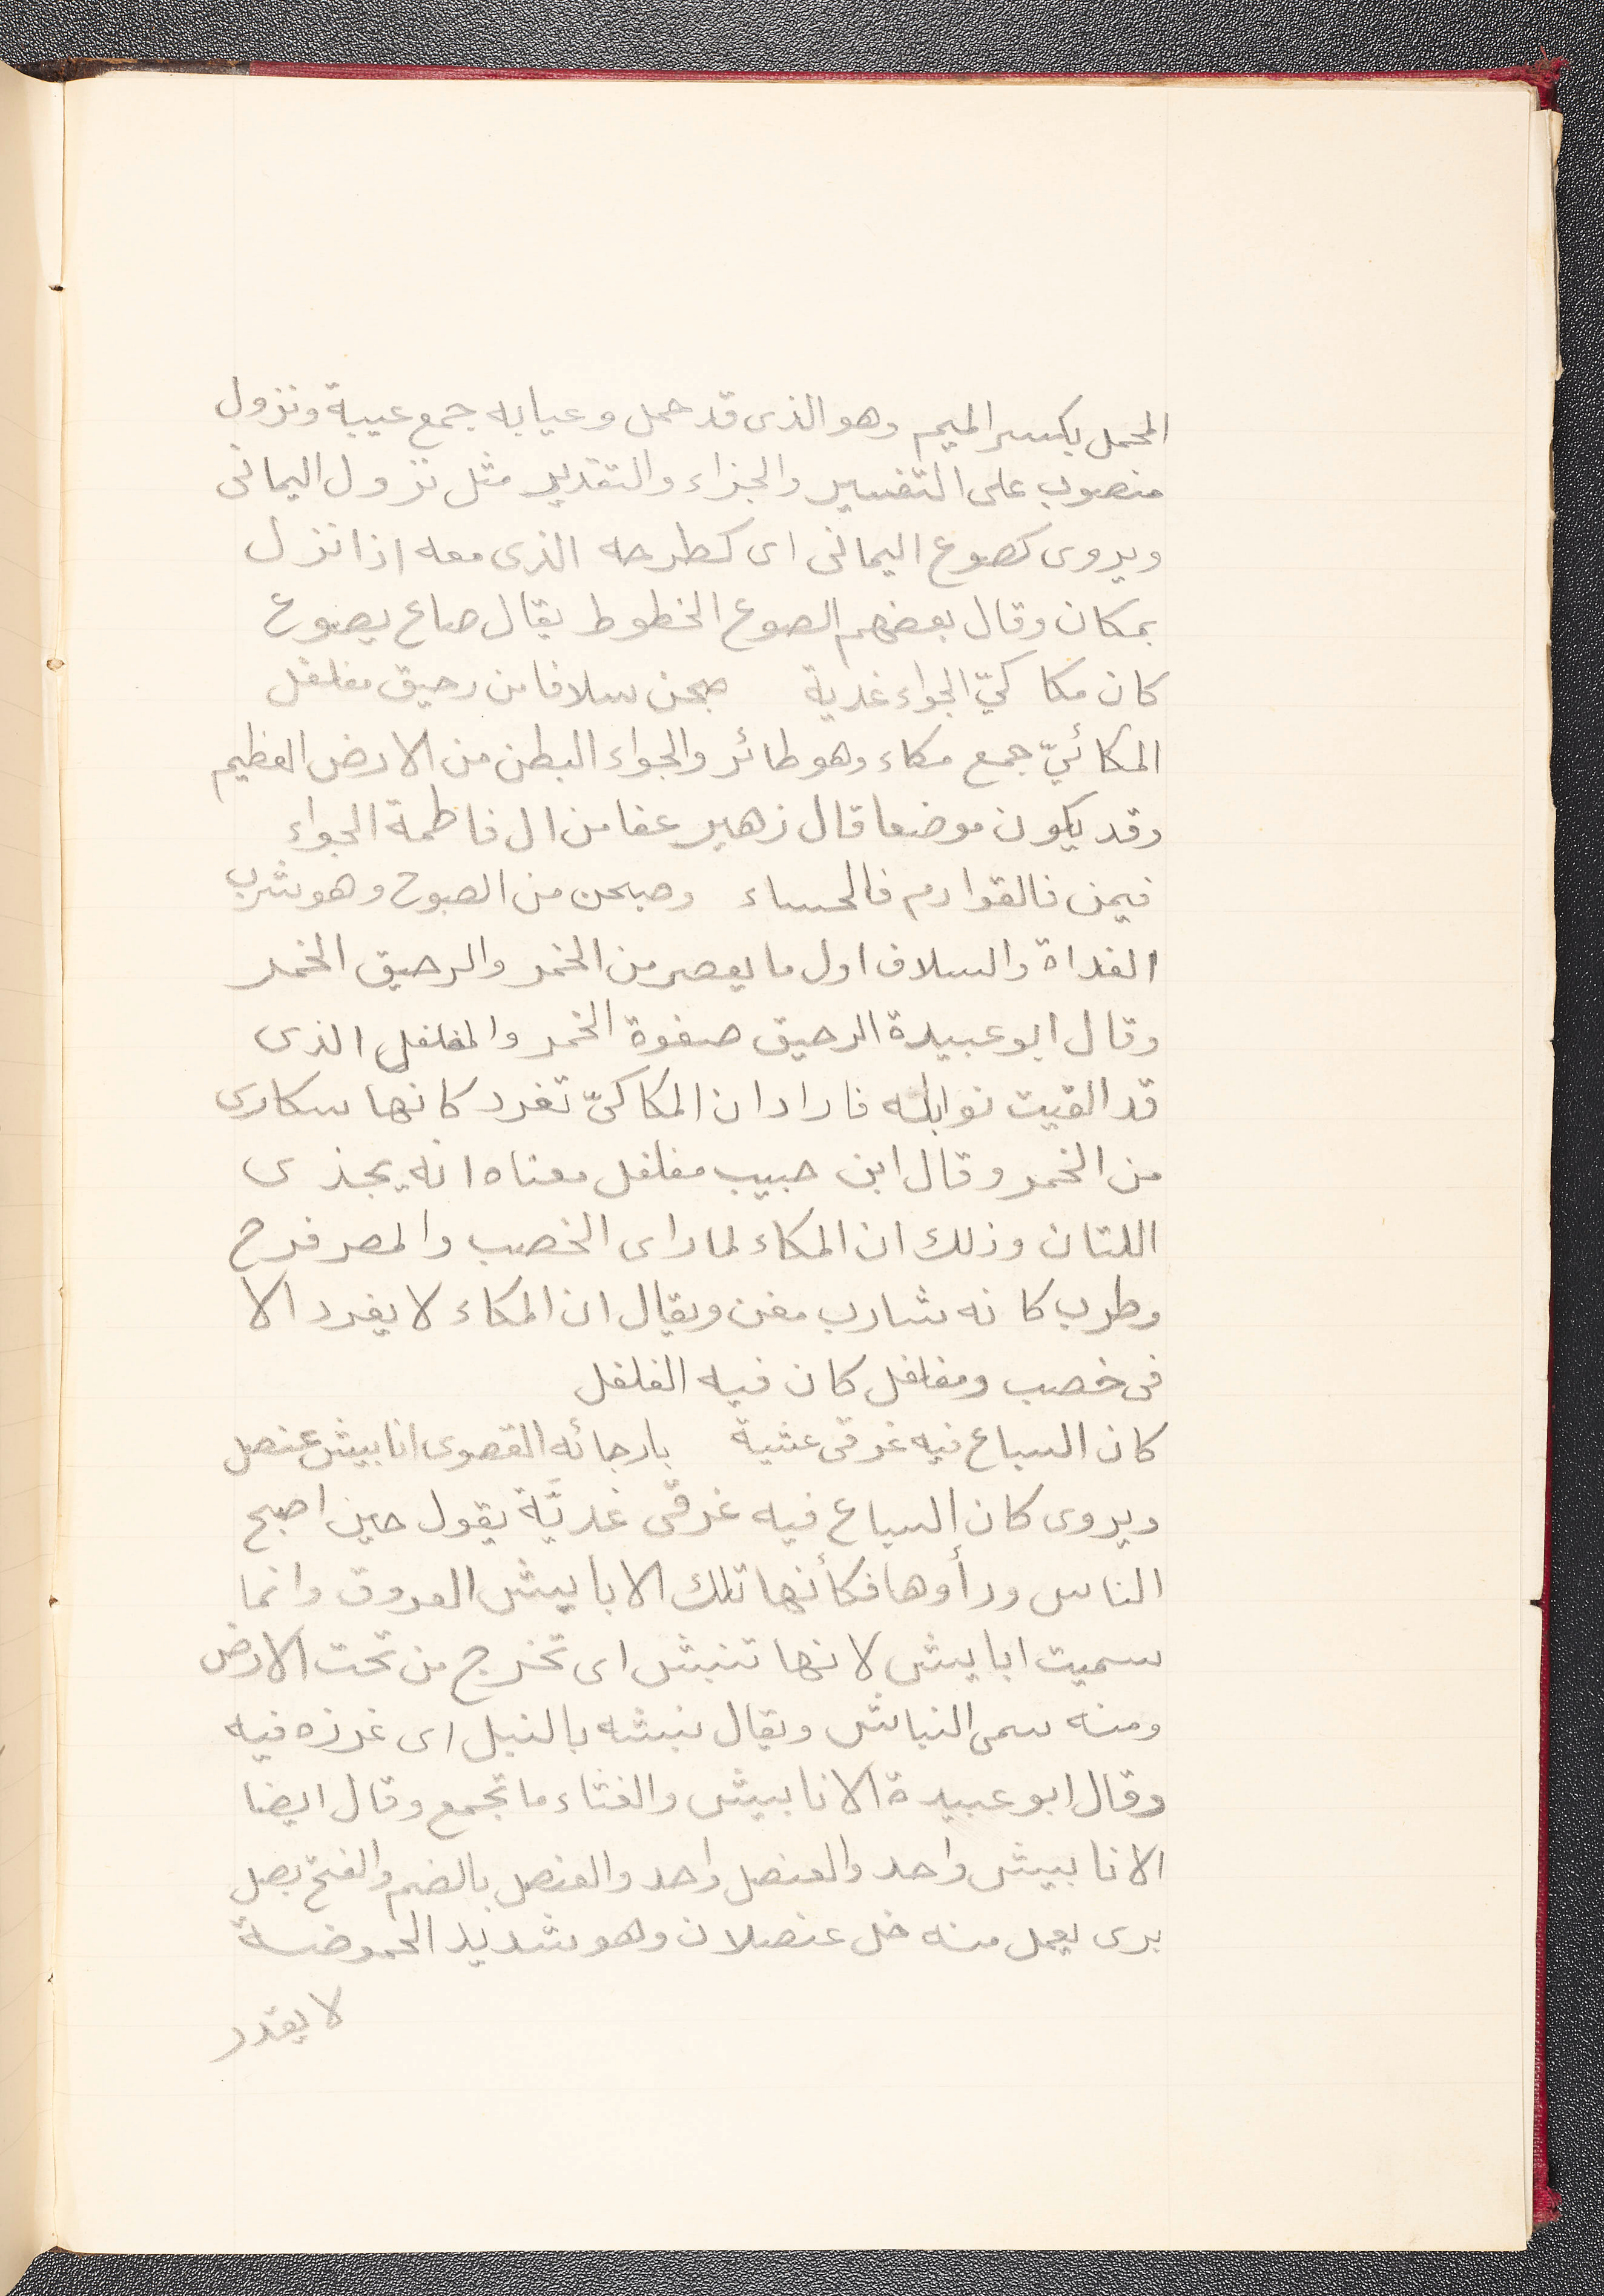 المحمل بكسر الميم وهو الذى قد حمل وعيابه جمع عيبة ونزول
منصوب على التفسير والجزاء والتقدير مثل نزول اليمانى
ويروى كصوع اليمانى اى كطرحه الذى معه اذا نزل
بمكان وقال بعضهم الصوع الخطوط يقال صاع يصوع
كان مكا كيّ الجواء غدية صبحن سلافا من رحيق مفلفل
المكائيّ جمع مكاء وهو طائر والجواء البطن من الارض العظيم
وقد يكون موضعا قال زهير عفا من ال فاطمة الجواء
فيمن فالقوادم فالحساء وصبحن من الصبوح وهو شرب
الغداة والسلاف اول ما يعصر من الخمر والرحيق الخمر
وقال ابو عبيدة الرحيق صفوة الخمر والمفلفل الذى
قد القيت توابله فاراد ان المكاكىّ تغرد كانها سكارى
من الخمر وقال ابن حبيب مفلفل معناه انه يجذى
اللتان وذلك ان المكاء لما راى الخصب والمصر فرح
وطرب كانه شارب مغن ويقال ان المكاء لا يغرد الا
فى خصب ومفلفل كان فيه الفلفل
كان السباع فيه غرقى عشية بارجائه القصوى انابيش عنصل
ويروى كان السباع فيه غرقى غديّة يقول حين اصبح
الناس ورأوها فكأنها تلك الابابيش العروق وانما
سميت ابابيش لانها تنبش اى تخرج من تحت الارض
ومنه سمى النباش ويقال نبشه بالنبل اى غرزه فيه
وقال ابو عبيدة الانابيش والغثاء ما تجمع وقال ايضا
الانابيش واحد والعنصل واحد والعنصل بالضم والفتح بصل
برى يعمل منه خل عنصلان وهو شديد الحموضة
لا يقدر